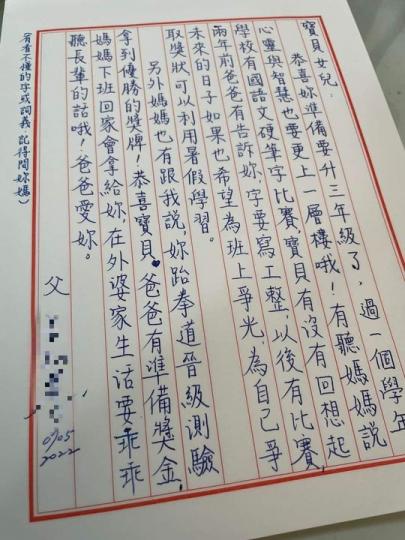 寶貝女兒：
恭喜妳準備要升三年級了，過一個學年
心靈與智慧也要更上一層樓哦！有聽媽媽說
學校有國語文硬筆字比賽，寶貝有沒有回想起
兩年前爸爸有告訴妳，字要寫工整，以後有比賽，
未來的日子如果也希望為班上爭光，為自己爭
取獎狀可以利用暑假學習。
另外媽媽也有跟我說，妳跆拳道晉級測驗
拿到優勝的獎牌！恭喜寶貝❤爸爸有準備獎金，
媽媽下班回家會拿給妳，在外婆家生活要乖乖
聽長輩的話哦！爸爸愛妳。
父
0705
2022
（有看不懂的字或詞義 記得問妳媽）